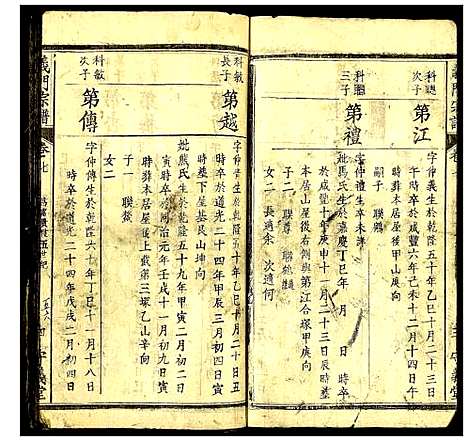 科總
次子
第江
字仲義生於乾隆五十年乙巳十一月二十三日
午時卒於咸豐六年己未十二月十四日午
時葬本居屋
嗣子 聯
科總
三子
第禮
字仲禮生卒未詳
妣馬氏生於嘉慶丁巳年 月 日 時卒
於咸豐十年庚申十一月二十三日
葬本居屋後右側與第江合塚甲庚向
子二 聯尊
女二 長適余 次適何
科敏
長子
第越
字仲晋生於乾隆五十年乙巳十月二十日丑
時卒於道光二十四年甲辰三月初四日寅
時葬下屋基艮山坤向
妣熊氏生於乾隆五十九年甲寅二月初三日
寅時卒於同治元年壬戌十一月初九日寅
時葬本居屋後上戴第三塚乙山辛向
子一 聯
女二
科敏
次子
第傳
字仲傳生於乾隆六十年丁巳十一月十八日
時卒於道光二十四年戊戌二月初四日
義門宗譜
卷七
守義堂